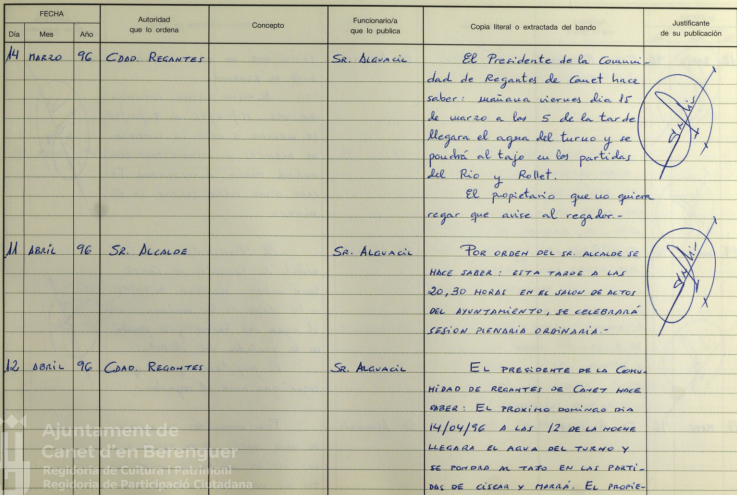 FECHA
Día Mes Año
Autoridad
que lo ordena
Concepto
Funcionario/a
que lo publica
Copia literal o extractada del bando
Justificante
de su publicación
14 MARZO 96 CDAD. REGANTES SR. ALGUACIL El Presidente de la Comuni-
dad de Regantes de Canet hace
saber: mañana viernes dia 15
de marzo a las 5 de la tarde
llegara el agua del turno y se
pondrá al tajo en las partidas
del Rio y Rollet.
El propietario que no quiera
regar que avise al regador.-
11 ABRIL 96 SR. ALCALDE SR. ALGUACIL POR ORDEN DEL SR. ALCALDE SE
HACE SABER: ESTA TARDE A LAS
20,30 HORAS EN EL SALON DE ACTOS
DEL AYUNTAMIENTO, SE CELEBRARÁ
SESION PLENARIA ORDINARIA.-
12 ABRIL 96 CDAD. REGANTES SR. ALGUACIL EL PRESIDENTE DE LA COMU-
NIDAD DE REGANTES DE CANET HACE
SABER: EL PROXIMO DOMINGO DIA
14/04/96 A LAS 12 DE LA NOCHE
LLEGARA EL AGUA DEL TURNO Y
SE PONDRA AL TAJO EN LAS PARTI-
DAS DE CISCAR Y MARRÁ. EL PROPIE-
Ajuntament de
Canet d'en Berenguer
Regidoria de Cultura i Patrimoni
Regidoria de Participació Ciutadana